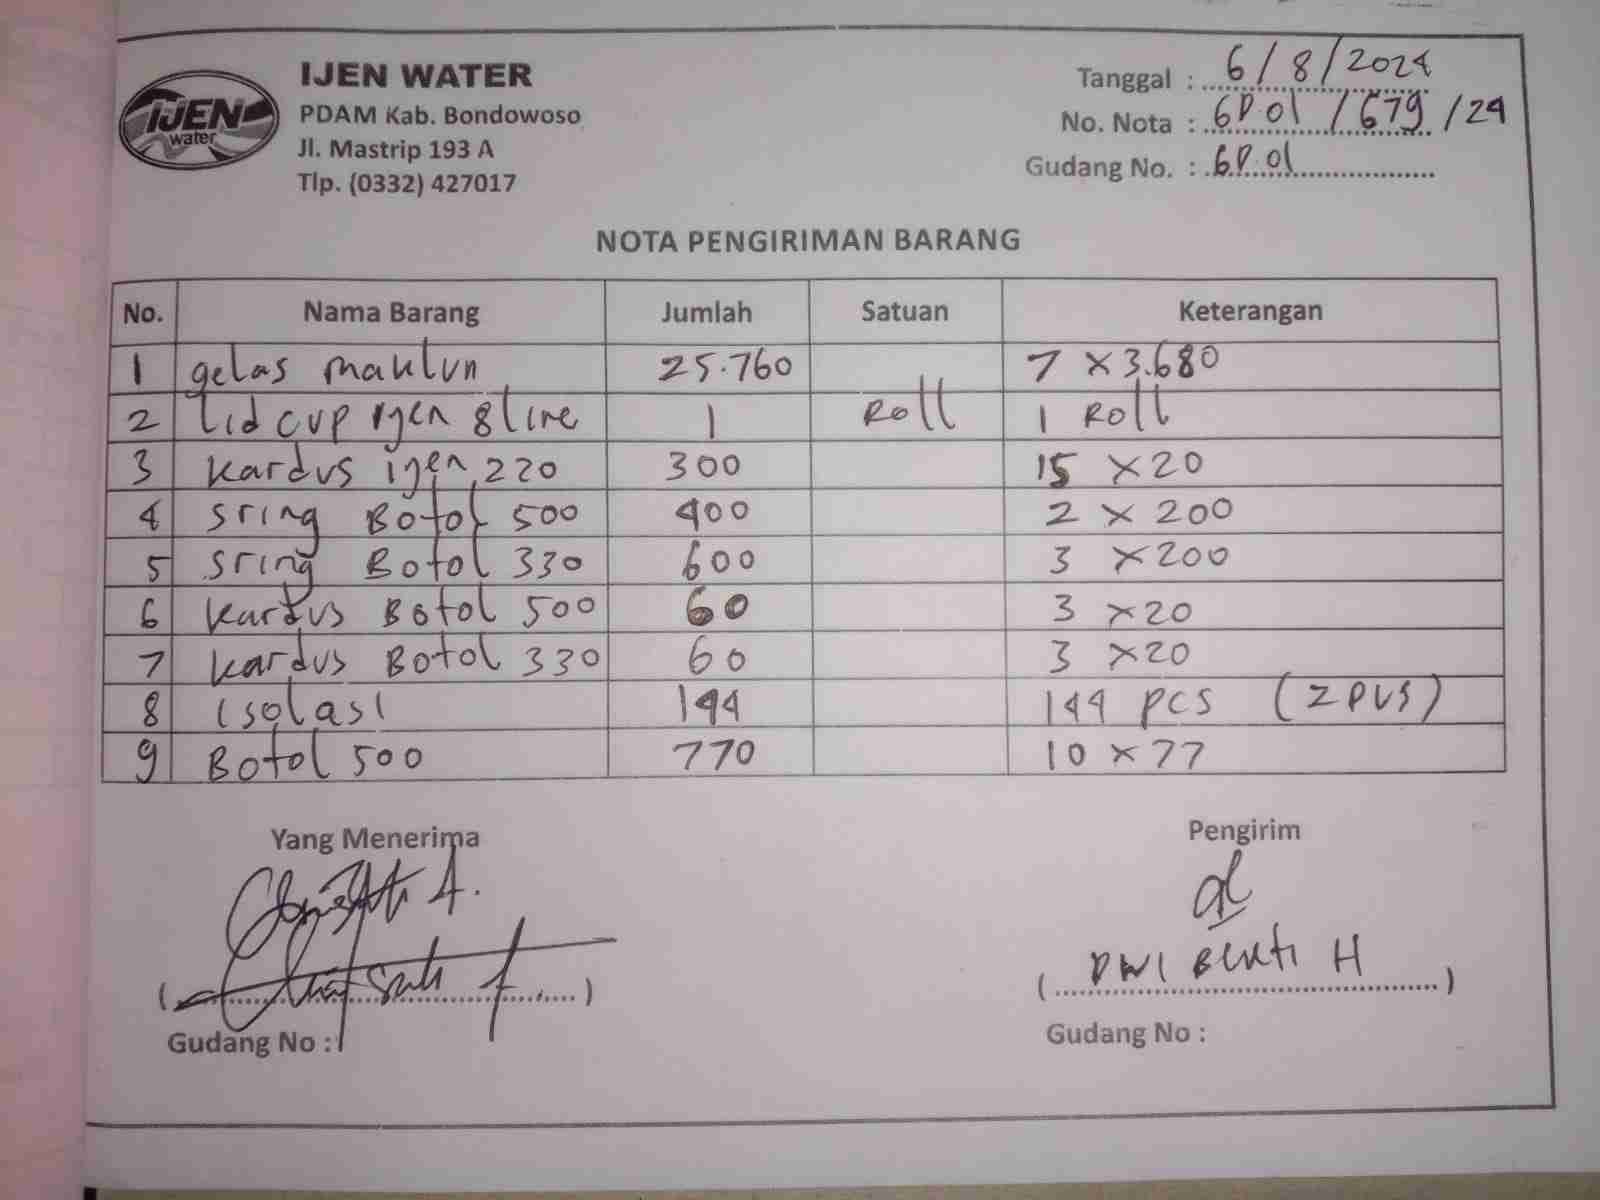 IJEN WATER
PDAM Kab. Bondowoso
Jl. Mastrip 193 A
Tlp. (0332) 427017
IJEN
water
Tanggal : 6/8/2024
No. Nota : GD.01 / 679 / 24
Gudang No. : GD.01
NOTA PENGIRIMAN BARANG
No. Nama Barang Jumlah Satuan Keterangan
1 gelas maklun 25.760 7 x 3.680
2 Lid cup ijen 8 line 1 Roll 1 Roll
3 kardus ijen 220 300 15 x 20
4 sring Botol 500 400 2 x 200
5 sring Botol 330 600 3 x 200
6 kardus Botol 500 60 3 x 20
7 kardus Botol 330 60 3 x 20
8 isolasi 144 144 pcs (2 pus)
9 Botol 500 770 10 x 77
Yang Menerima Pengirim
( ) ( DWI BEKTI H )
Gudang No : Gudang No :